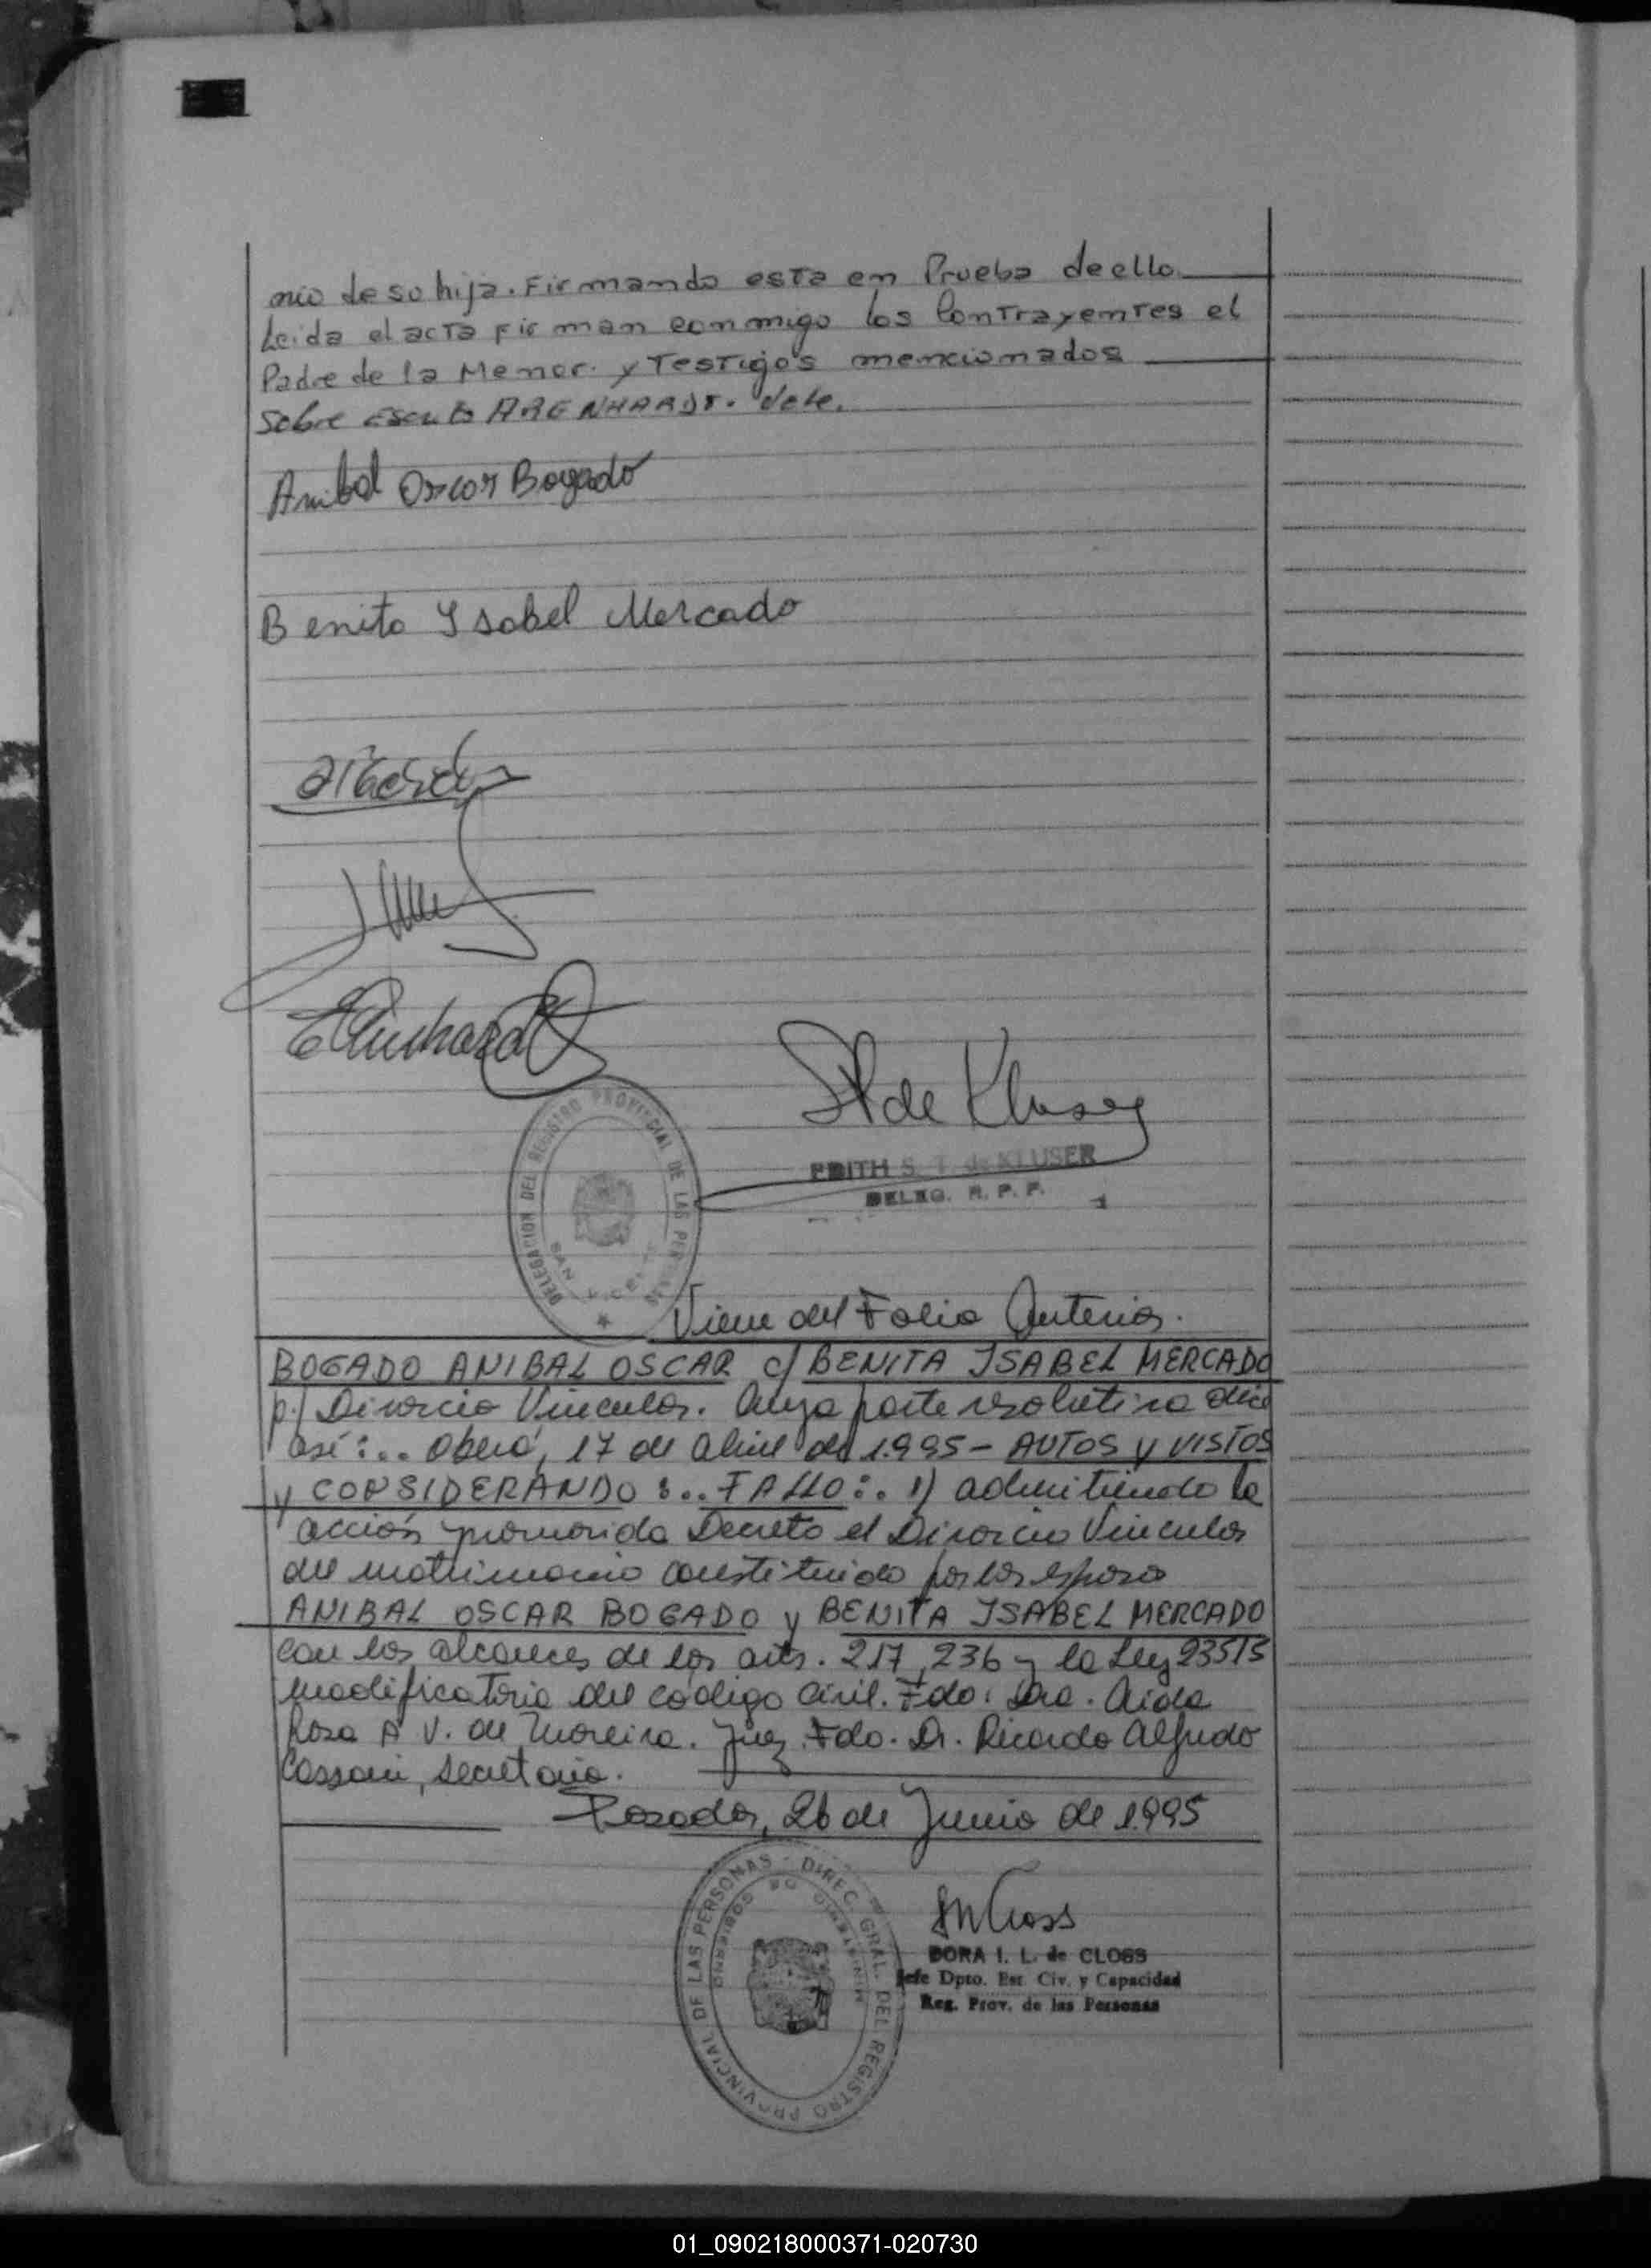 nio de su hija. Firmando esta en Prueba de ello
Leida el acta Firman conmigo los Contrayentes el
Padre de la Menor. y Testigos mencionados
Sobre Escrito ARENHARDT. Vale.
Anibal Oscar Bogado
Benita Ysabel Mercado
DELEGACION DEL REGISTRO PROVINCIAL DE LAS PERSONAS
SAN VICENTE
de Kluser
EDITH S. T. de KLUSER
DELEG. R. P. P.
Viene del Folio Anterior.
BOGADO ANIBAL OSCAR c/ BENITA ISABEL MERCADO
p./ Divorcio Vincular. Cuya parte resolutiva dice
así:... Oberá, 17 de Abril del 1.995 - AUTOS y VISTOS
y CONSIDERANDO:.. FALLO:. 1) admitiendo la
acción promovida Decreto el Divorcio Vincular
del matrimonio constituido por los esposos
ANIBAL OSCAR BOGADO y BENITA ISABEL MERCADO
con los alcances de los arts. 217, 236 y la Ley 23515
modificatoria del código Civil. Fdo: Dra. Aida
Rosa A V. de Moreira. Juez. Fdo. Dr. Ricardo Alfredo
Cassoni, Secretario.
Posadas, 26 de Junio de 1.995
DIREC. GRAL. DEL REGISTRO PROVINCIAL DE LAS PERSONAS
MINISTERIO DE GOBIERNO
DORA I. L. de CLOSS
Jefe Dpto. Est. Civ. y Capacidad
Reg. Prov. de las Personas
01_090218000371-020730